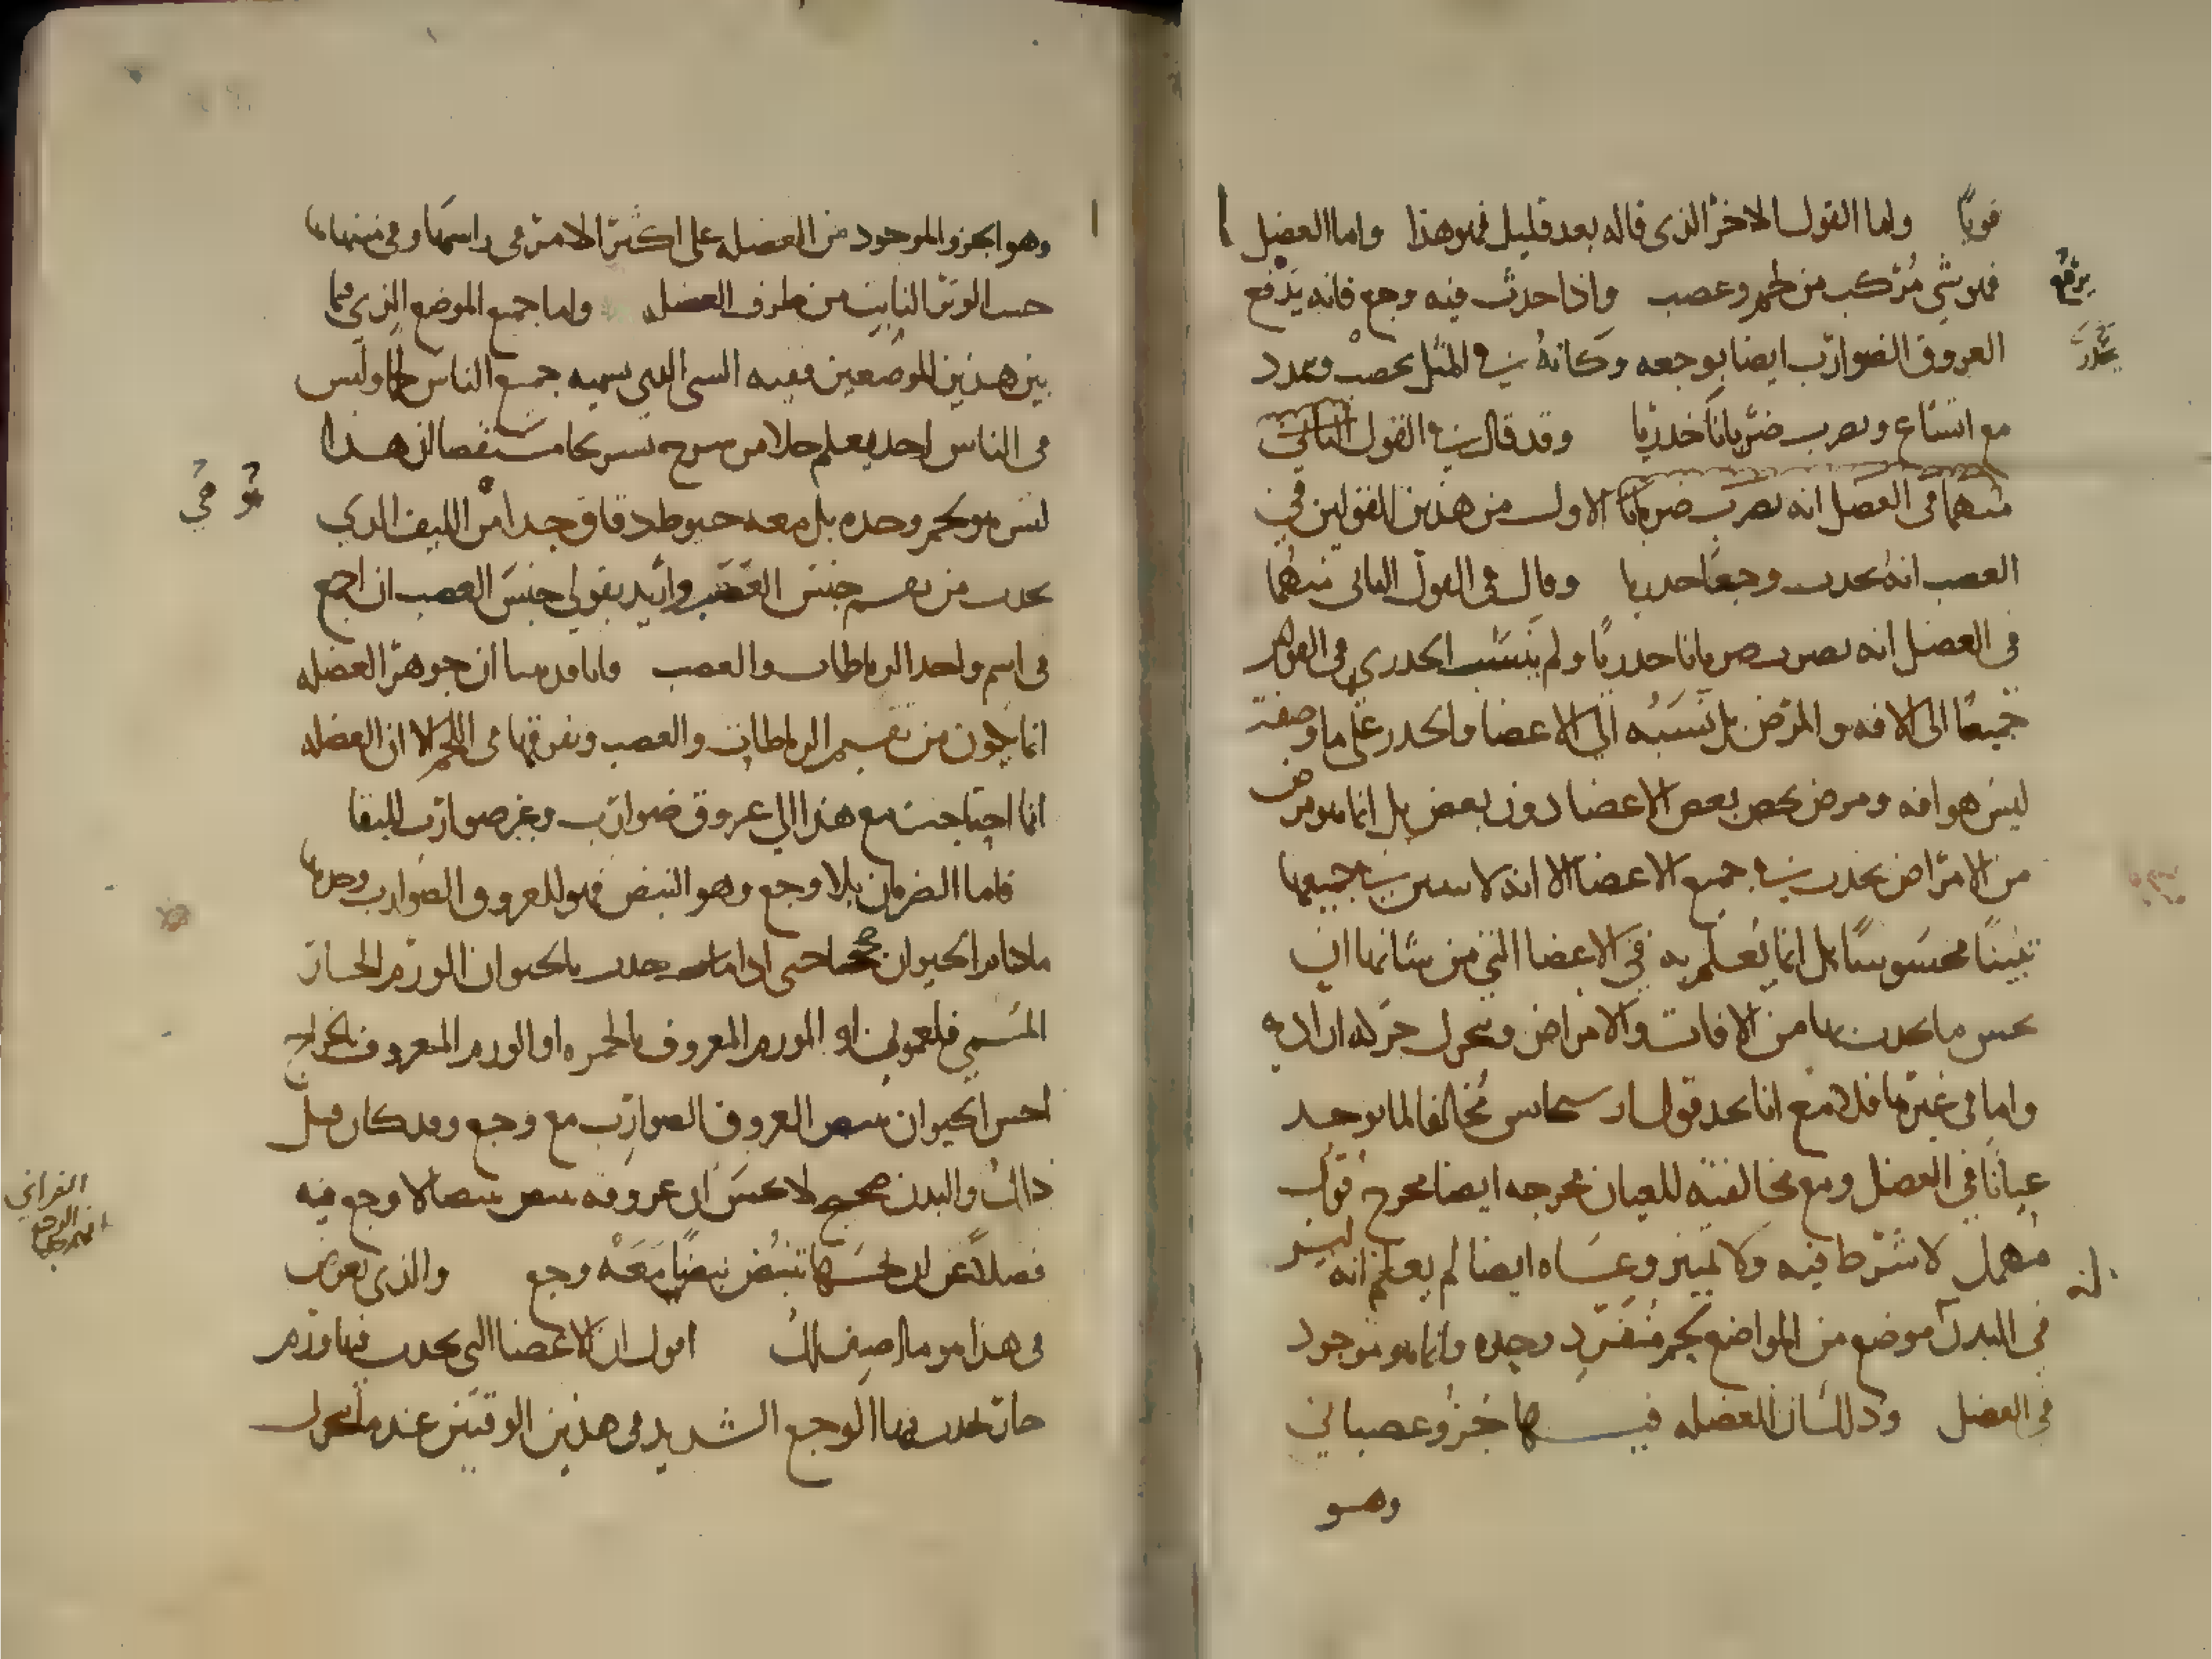 قويا واما القول الاخر الذى قاله بعد قليل فهو هذا واما العضل
فهو شى مركب من لحم وعصب واذا حدث فيه وجع فانه يدفع
العروق الضوارب ايضا بوجعه وكانه فى المثل بعصب وتمدد
مع اتساع وىضرب ضربانا خدريا وقد قال فى القول الثانى
منهما فى العضل انه ىضرب ضربانا الاول من هذين القولين فى
العصب انه ىحدث وجعا خدريا وقال فى القول الثانى منهما
فى العضل انه ىضرب ضربانا خدريا ولم ينسب الخدرى فى القولين
جميعا الى الافه والمرض بل نسبه الى الاعضا والخدر على ما وصفت
ليس هو افه ومرض يخص بعض الاعضا دون بعض بل انما هو مرض
من الامراض يحدث فى جميع الاعضا الا انه لا ىتبين فى جميعها
تبينا محسوسا بل انما يعلم به فى الاعضا التى من شانها ان
تحس ما يحدث بها من الافات والامراض وتتحرك حركه اراديه
واما فى غيرها فلا ومع انا نجد قول ارشيجانس مخالفا لما يوجد
عيانا فى العضل ومع مخالفته للعيان مخرجه ايضا مخرج قول
مهمل لا شرط فيه ولا تمييز وعساه ايضا لم يعلم انه ليس
فى البدن موضع من المواضع لحم منفرد وحده وانما هو موجود
فى العضل وذلك ان العضله فيها جزو عصبانى
وهو
يرفع
تمدد
لانه
وهو الجزو الموجود من العضله على اكثر الامر فى راسها وفى منتهاها
حيث الوتر النابت من طرف العضله واما جميع الموضع الذى فيما
بين هذين الموضعين ففيه الشى الذى يسميه جميع الناس لحما وليس
فى الناس احد يعلم خلا من شرح تشريحا مستقصا ان هذا
ليس هو لحم وحده بل معه خيوط دقاق جدا من الليف الذى
يحدث من تقسم جنس العصب واريد بقولى جنس العصب ان اجمع
فى اسم واحد الرباطات والعصب وانا قد بينا ان جوهر العضله
انما يكون من تقسيم الرباطات والعصب وتفرقها فى اللحم الا ان العضله
انما احتاجت مع هذا الى عروق ضوارب وغير ضوارب للبقا
فاما الضربان بلا وجع وهو النبض فهو للعروق الضوارب وحدها
مادام الحيوان صحيحا حتى اذا حدث بالحيوان الورم الحار
المسمى فلغمونى او الورم المعروف بالحمره او الورم المعروف بالخراج
احس الحيوان بنبض العروق الضوارب مع وجع وقد كان قبل
ذلك والبدن صحيح لا يحس ان عروقه تنبض نبضا لا وجع فيه
فضلا عن ان يحسها تنبض نبضا معه وجع والذى يعرض
فى هذا هو ما اصف لك اقول ان الاعضا التى يحدث فيها ورم
حار يحدث فيها الوجع الشديد فى هذين الوقتين عند ما تتحرك
هو فى